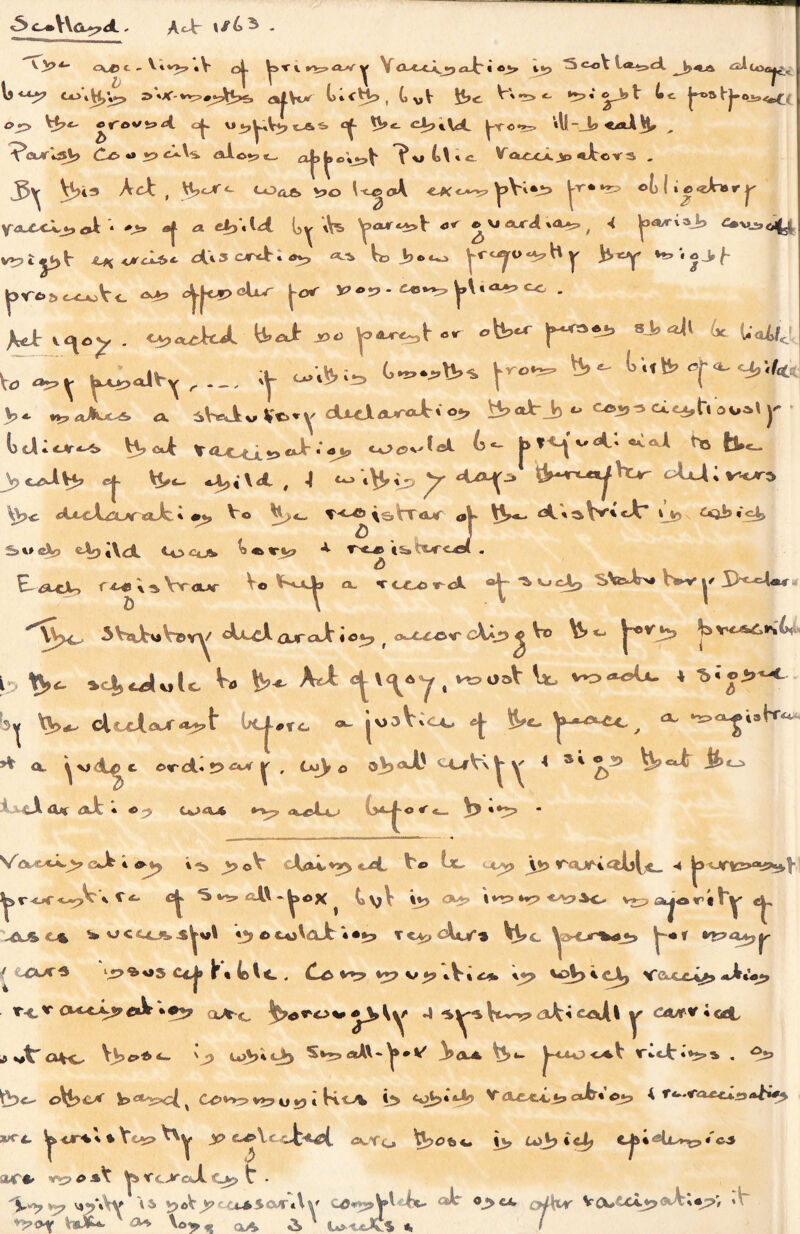 Scotland. Act 1863.
The age-limit of primary Vaccination in Scotland has always
been within six-months after birth, but the time might be postponed
on the ground of unfitness of the child from ill-health.
Parish Councils alone appoint Public Vaccinators.
By this Act, there was no legal exemption from obligatory
vaccination of a child by its parent or guardian, & parish councils
might exercise discretion as to how frequently they might
prosecute an offender for non-compliance.
Act 1907. enacted that no parent or other person shall be liable
to any penalty, ..., if within 6 months from the birth of a child
he makes a statutory declaration that he conscientiously
believes that vaccination would be prejudicial to the
health of the child, & within 7 days thereafter delivers
the declaration to the registrar of the district in which
such child was born & registered.
Each registrar to keep a record of such Statutory Declar
The Statutory declaration, according to the form prescribed
in the schedule to the Act of 1907, must be made & signed
by the declarant before a justice of the peace, a magistrate
or a judge ordinary, who shall certify & sign that the
declaration was made before him.
Vaccination is not claimed to be an invariable & permanent
preventive of Small-pox, but in an immense majority of
cases successful inoculation renders the person for many
years insusceptible. Communities in which vaccination
& revaccination are thoroughly & systematically carried
out are those in which Small-pox has the fewest victims. On
the other hand, communities in which vaccination & re-vaccination
are persistently neglected are those in which epidemics
are most prevalent.
Immunity is not necessarily complete at once after vaccination; it
may take as long as 3 weeks.